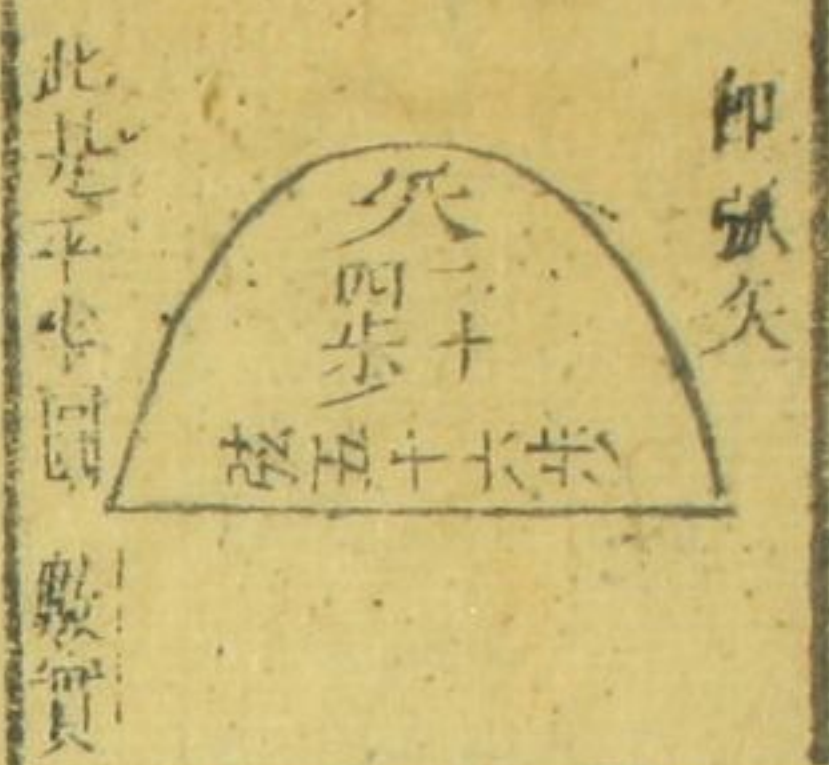 即弧矢
矢
二十
四步
弦五十六步
此是平半圓